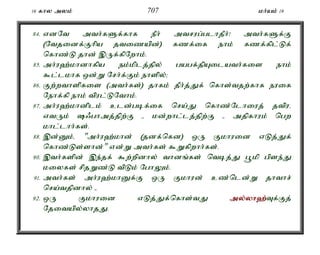 16 கால அலம் 707 மர்யம் 19
84. எனவே அவர்களுக்காக நீர் அவசரப்படாதீர்! அவர்களுக்கு (வேதனைக்குரிய தவணையின்) கணக்கை நாம் கணக்கிட்டுக் கொண்டு தான் இருக்கிறோம்.
85. அர்ரஹ்மானாகிய நம்மிடத்தில் பயபக்தியுடையவர்களை நாம் கூட்டமாக ஒன்று சேர்க்கும் நாளில்;
86. குற்றவாளிகளை (அவர்கள்) தாகம் தீர்த்துக் கொள்வதற்காக நரகை நோக்கி நாம் விரட்டுவோம்.
87. அர்ரஹ்மானிடம் உடன்படிக்கை செய்து கொண்டோரைத் தவிர, எவரும் ஷஃபாஅத்திற்கு - மன்றாட்டத்திற்கு - அதிகாரம் பெற மாட்டார்கள்.
88. இன்னும், "அர்ரஹ்மான் (தனக்கென) ஒரு குமாரனை எடுத்துக் கொண்டுள்ளான்" என்று அவர்கள் கூறுகிறார்கள்.
90. இவர்களின் இந்தக் கூற்றினால் வானங்கள் வெடித்து பூமி பிளந்து மலைகள் சிதறுண்டு விடும் போலும்.
91. அவர்கள் அர்ரஹ்மானுக்கு ஒரு குமாரன் உண்டென்று தாவாச் செய்வதினால் -
92. ஒரு குமாரனை எடுத்துக்கொள்வது அல்லாஹ்வுக்குத் தேவையில்லாதது.